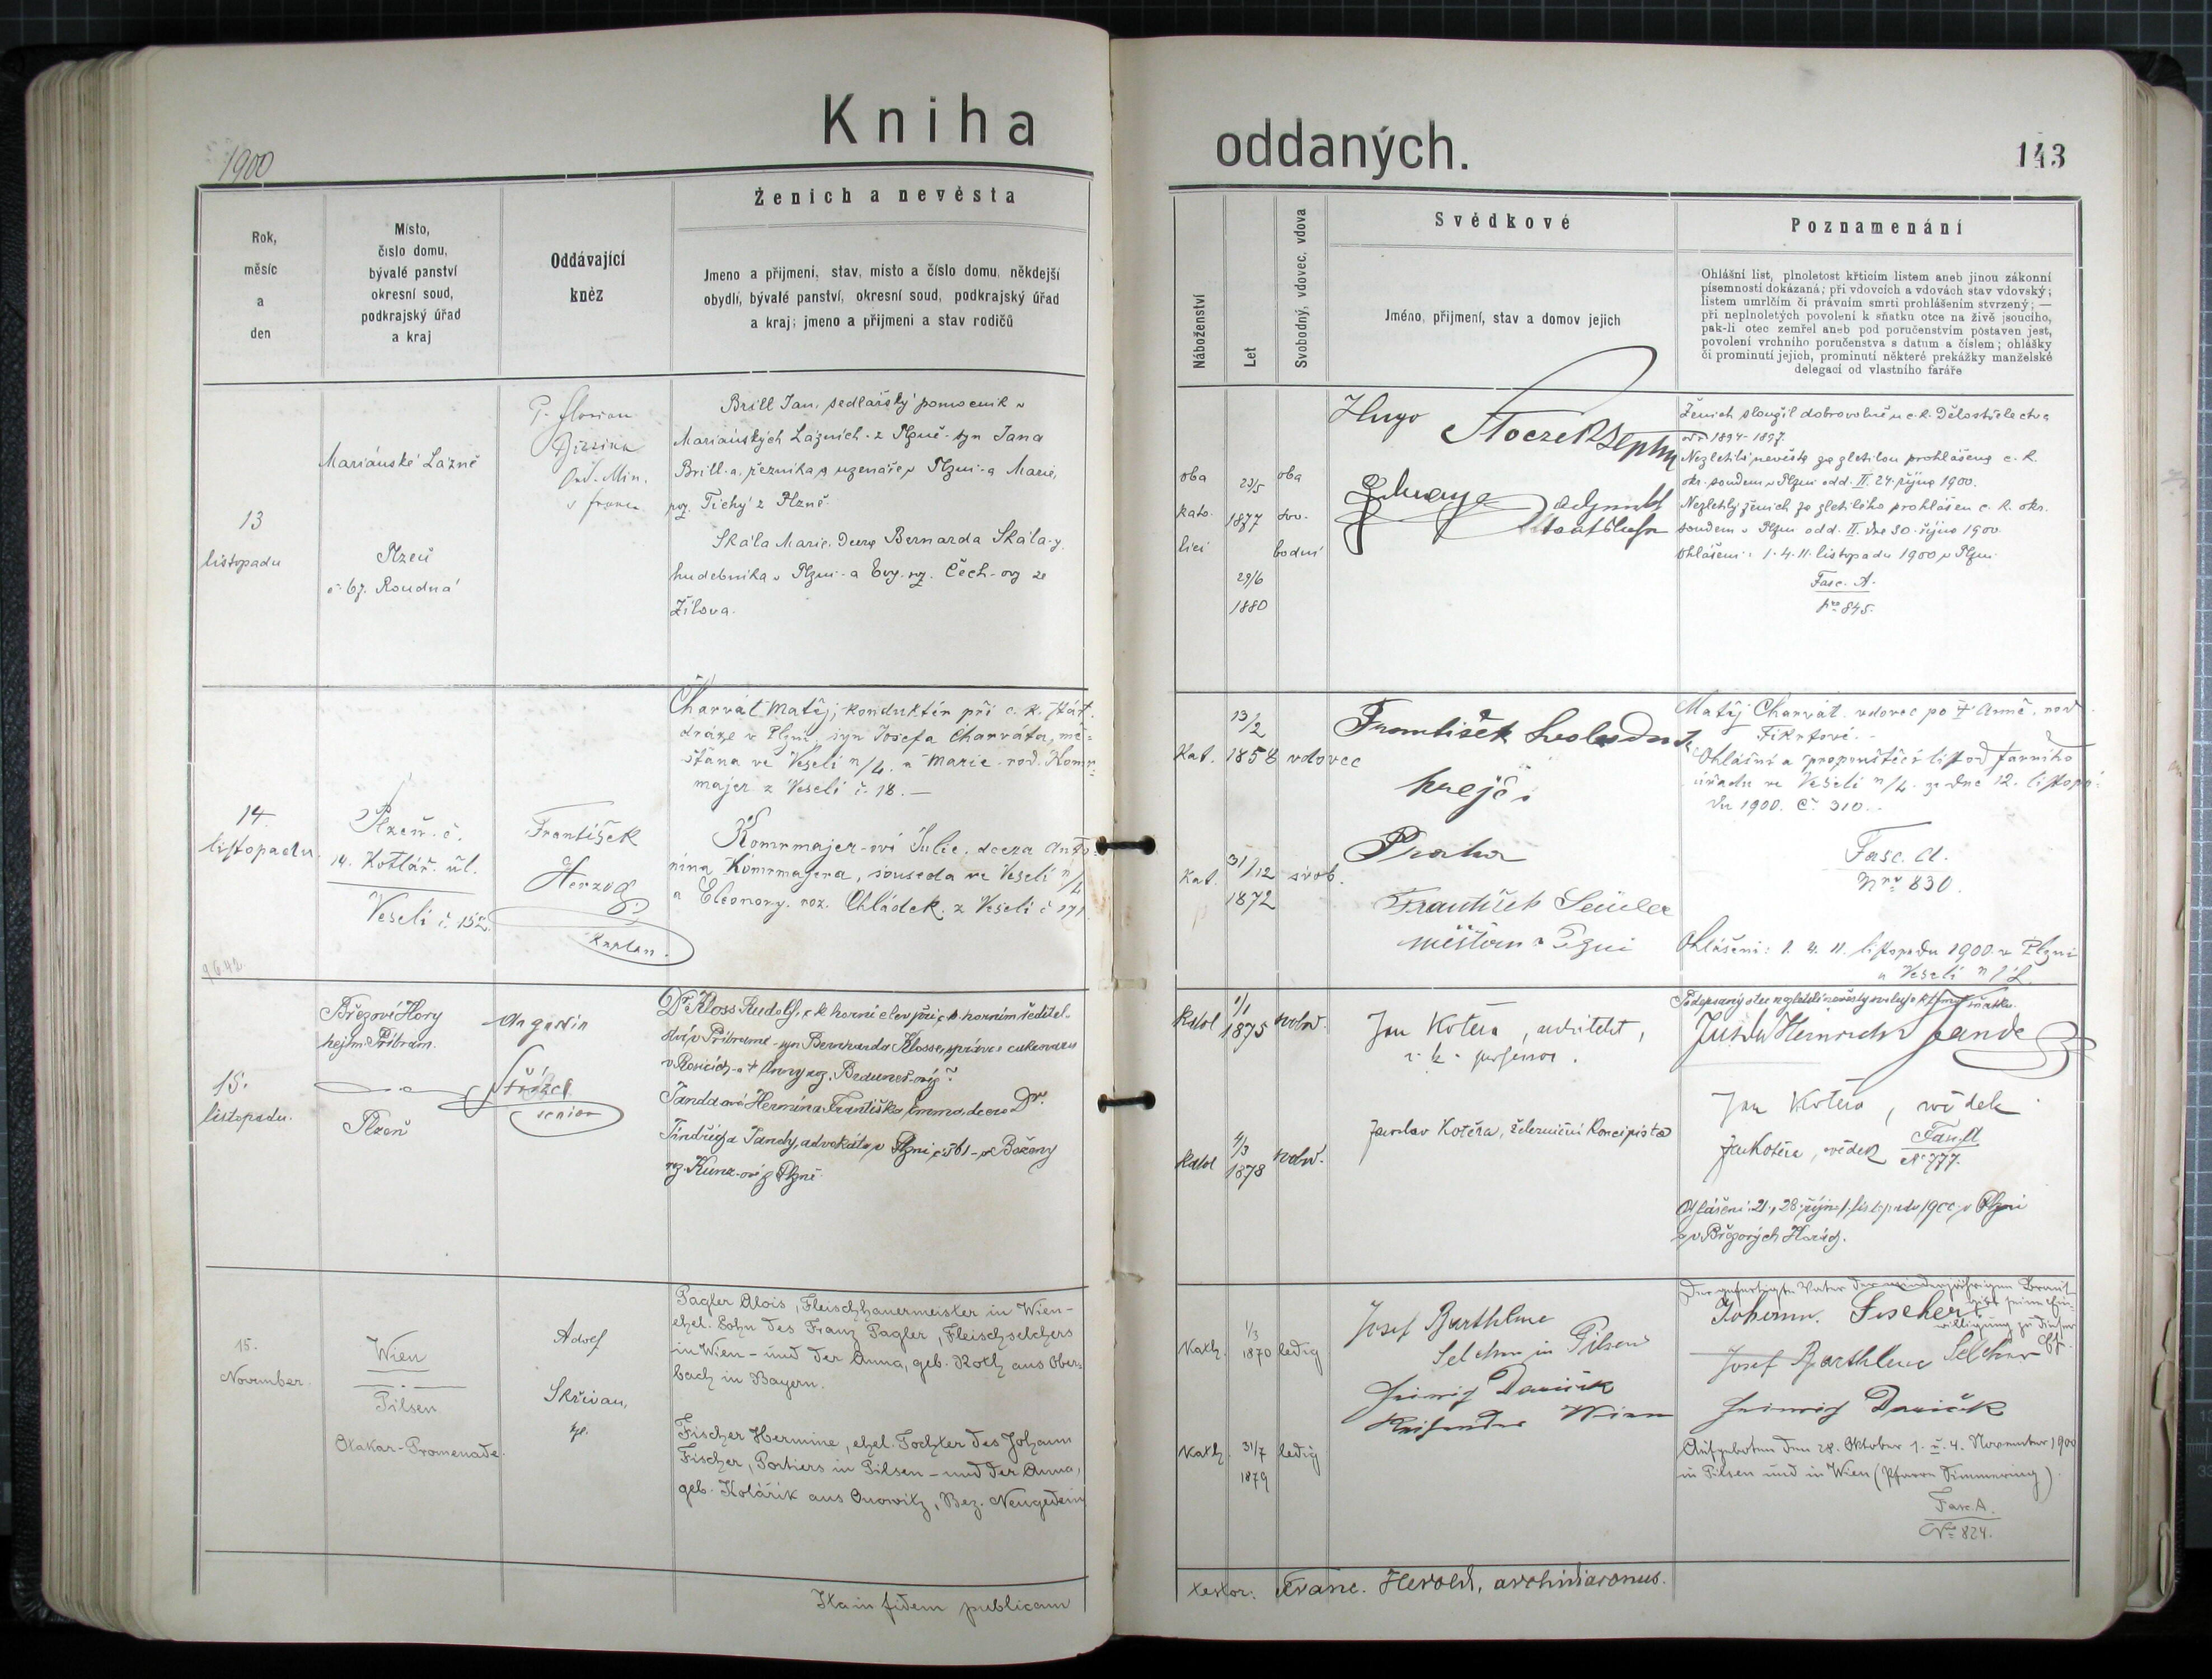 1900
Kniha
oddaných.
143
Rok,
měsíc
a
den
Místo,
číslo domu,
bývalé panství
okresní soud,
podkrajský úřad
a kraj
Oddávající
kněz
Ženich a nevěsta
Jmeno a přijmení, stav, místo a číslo domu, někdejší
obydlí, bývalé panství, okresní soud, podkrajský úřad
a kraj; jmeno a přijmení a stav rodičů
Náboženství
Let
Svobodný, vdovec, vdova
Svědkové
Jméno, přijmení, stav a domov jejich
Poznamenání
Ohlášní list, plnoletost křticím listem aneb jinou zákonní
písemností dokázaná; při vdovcích a vdovách stav vdovský;
listem umrlčím či právním smrti prohlášením stvrzený; —
při neplnoletých povolení k sňatku otce na živě jsoucího,
pak-li otec zemřel aneb pod poručenstvím postaven jest,
povolení vrchního poručenstva s datum a číslem; ohlášky
či prominutí jejich, prominutí některé prekážky manželské
delegací od vlastního faráře
13
listopadu
Mariánské Lázně
Plzeň
č. 67. Roudná
P. Florian
Ord. Min.
s franc.
Brill Jan, sedlářský pomocník v
Mariánských Lázních - z Plzně - syn Jana
Brill-a, řezníka a uzenáře v Plzni - a Marie,
roz. Tichý z Plzně
Skála Marie, dcera Bernarda Skála-y,
hudebníka v Plzni - a Evy, roz. Čech-ovy ze
Žilova.
oba
kato-
líci
23/5
1877
29/6
1880
oba
svo-
bodní
Hugo Stoczek
Ženich sloužil dobrovolně u c. k. Dělostřelectva
od r. 1894-1897.
Nezletilá nevěsta za zletilou prohlášena c. k.
okr. soudem v Plzni odd. II. 24. října 1900.
Nezletilý ženich za zletilého prohlášen c. k. okr.
soudem v Plzni odd. II. dne 30. října 1900.
Ohlášeni: 1. 4. 11. listopadu 1900 v Plzni
Fasc. A.
Nro 845.
14.
listopadu.
Plzeň č.
14. Kotlář. ul.
Veselí č. 152.
František
Herzog
kaplan.
Charvát Matěj, konduktér při c. k. stát.
dráze v Plzni, syn Josefa Charváta, mě-
šťana ve Veselí n/L. a Marie rod. Komr-
majer z Veselí č. 18. —
Komrmajer-ová Julie, dcera Anto-
nína Komrmajera, souseda ve Veselí n/L
a Eleonory, roz. Chládek z Veselí č. 171
Kat.
13/2
1858
vdovec
Kat.
31/12
1872
svob.
František
krejčí
Praha
František
měšťan v Plzni
Matěj Charvát, vdovec po † Anně, rod.
Fikrtové. -
Ohlášní a propouštěcí list od farního
úřadu ve Veselí n/L. ze dne 12. listopa-
du 1900. č. 310.
Fasc. A.
Nro 830.
Ohlášeni: 1. 4. 11. listopadu 1900. v Plzni
a Veselí n/L.
9.6.42
15.
listopadu.
Březové Hory
hejtm. Příbram.
Plzeň
Augustin
Strnad
senior
Dr. Kloss Rudolf, c. k. horní elev při c. k. horním ředitel-
ství v Příbrami - syn Bernharda Klosse, správce cukrovaru
v Rosicích - a † Anny roz.
Jandaová Hermína Františka Emma, dcera Dr.
Jindřicha Jandy, advokáta v Plzni č. 361 - a Boženy
roz. Kunz-ové z Plzně.
Katol
1/1
1875
svobod.
Katol
4/3
1878
svobod.
Jan Kotěra, architekt,
c. k. professor.
Jaroslav Kotěra, železniční koncipista
Podepsaný otec nezletilé nevěsty svoluje k tomuto sňatku.
JUSt. Dr. Heinrich Janda
Jan Kotěra, svědek
Jar. Kotěra, svědek
Fas. A
No 777.
Ohlášeni: 21., 28. října 1. listopadu 1900 v Plzni
a v Březových Horách.
15.
November.
Wien
Pilsen
Otakar-Promenade.
Adolf
Skřivan,
kpl.
Pagler Alois, Fleischhauermeister in Wien -
ehel. Sohn des Franz Pagler, Fleischselchers
in Wien - und der Anna, geb. Roth aus Ober-
bach in Bayern.
Fischer Hermine, ehel. Tochter des Johann
Fischer, Portiers in Pilsen - und der Anna,
geb. Kolářik aus Onowitz, Bez. Neugedein
Kath.
1/3
1870
ledig
Kath.
31/7
1879
ledig
Josef Barthlme
Selcher in Pilsen
Heinrich Daniček
Reisender Wien
Der gefertigte Vater der minderjährigen Braut
gibt seine Ein-
Johann Fischer
willigung zu dieser
Ehe.
Josef Barthlme Selcher
Heinrich Daniček
Aufgeboten den 28. Oktober 1. u. 4. November 1900
in Pilsen und in Wien (Pfarre Simmering).
Fasc. A.
Nro 824.
Ita in fidem publicam
testor: Franc. Herold, archidiaconus.